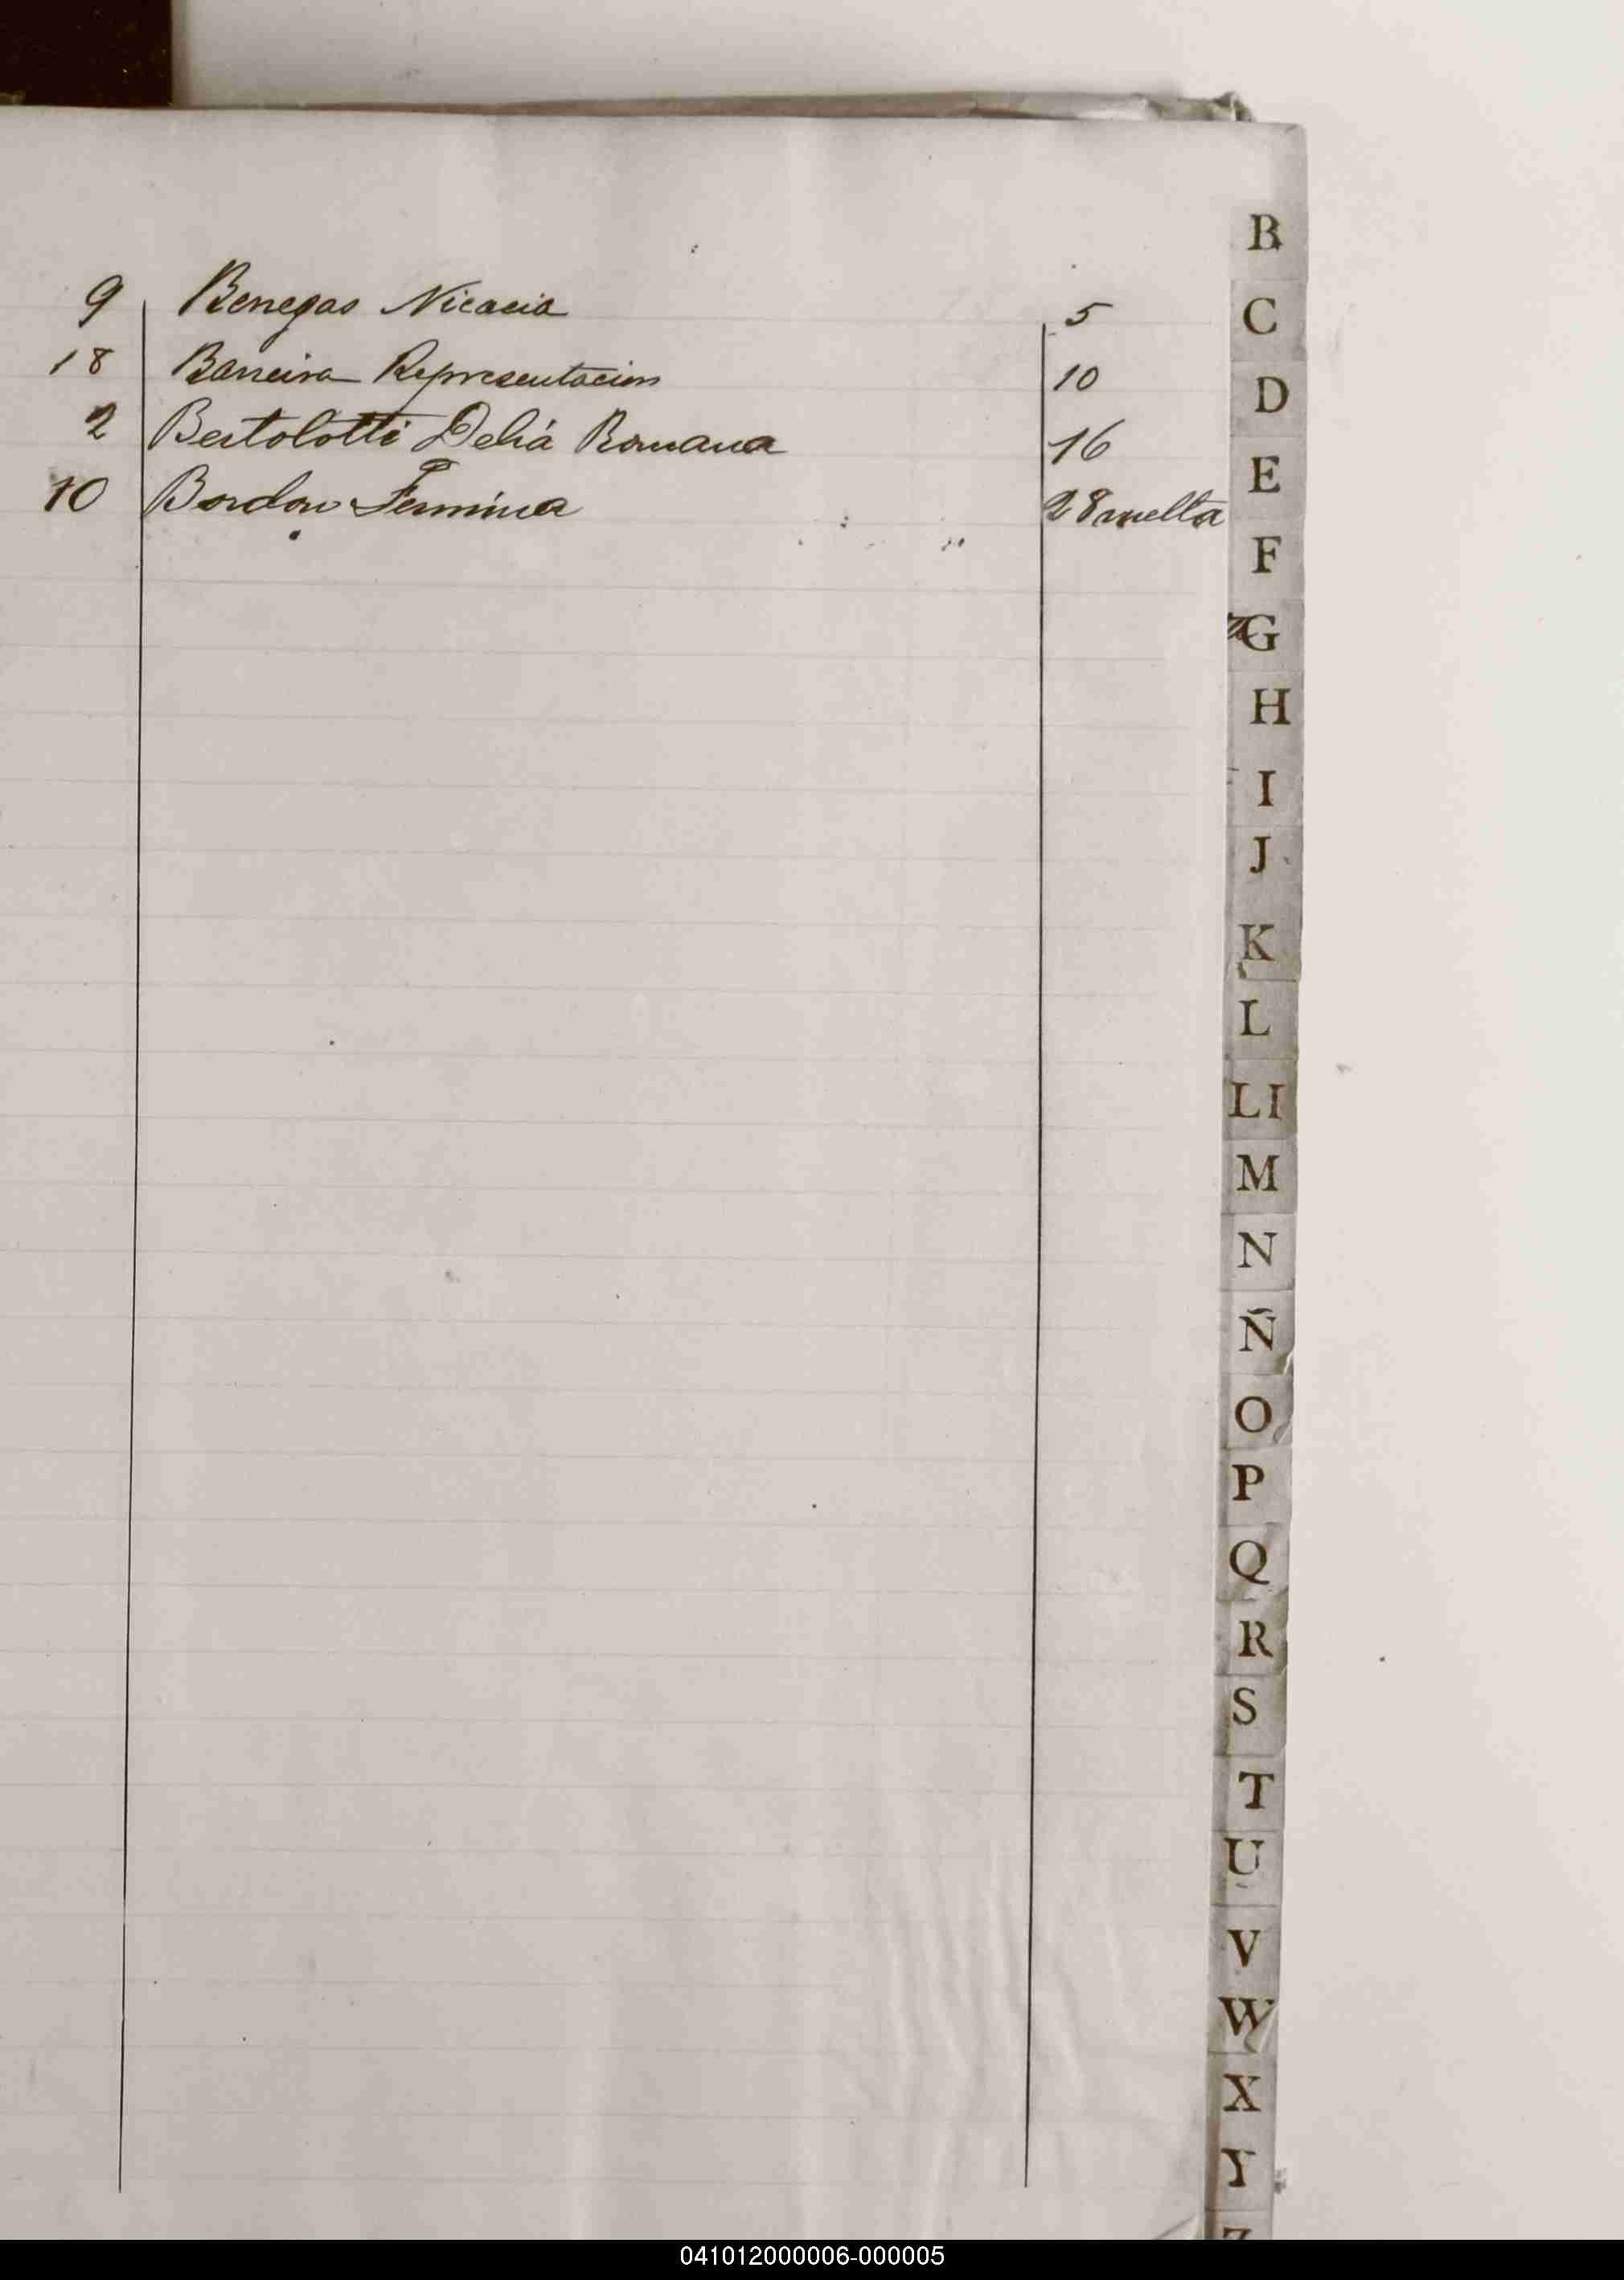 9 Benegas Nicacia 5
18 Barreira Representacion 10
2 Bertolotti Delia Romana 16
10 Bordon Fermina 28 vuelta
B
C
D
E
F
G
H
I
J
K
L
Ll
M
N
Ñ
O
P
Q
R
S
T
U
V
W
X
Y
Z
041012000006-000005